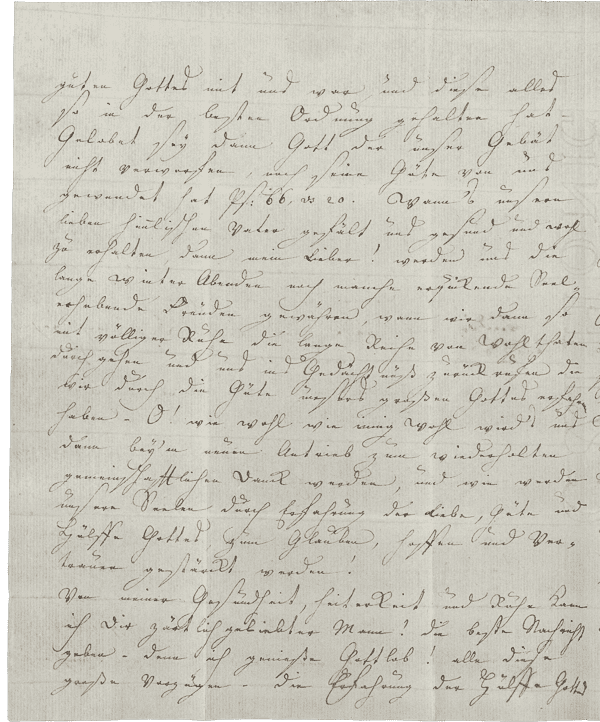 guten Gottes mit uns war und diese alles
so in der besten Ordnung gehalten hat
Gelobet sey dann Gott der unser Gebät
nicht verworfen, noch seine Güte von uns
gewendet hat Ps: 66, vs 20. Wann's unserm
lieben himlischen Vater gefält uns gesund und wohl
zu erhalten, dann mein Lieber! werden uns die
lange Winter Abenden noch manche erquikende Seel-
erhebende Freuden gewähren, wann wir dann so
mit völliger Ruhe die lange Reihe von Wohlthaten
durch gehen und uns ins Gedächtnüß zurück rufen die
wir durch die Güte unsers großen Gottes erfahren
haben - O! wie wohl wie innig wohl wird's uns
dann beym neuen Antrieb zum wiederholten
gemeinschafftlichen Danck werden, und wie werden
unsere Seelen durch Erfahrung der Liebe, Güte und
Hülffe Gottes zum Glauben, hoffen und Ver-
trauen gestärckt werden!
Von meiner Gesundheit, heiterkeit und Ruhe kan
ich Dir zärtlich geliebter Mann! die beste Nachricht
geben - denn ich genieße Gottlob! alle diese
große Vorzügen - die Erfahrung der Hülffe Gottes